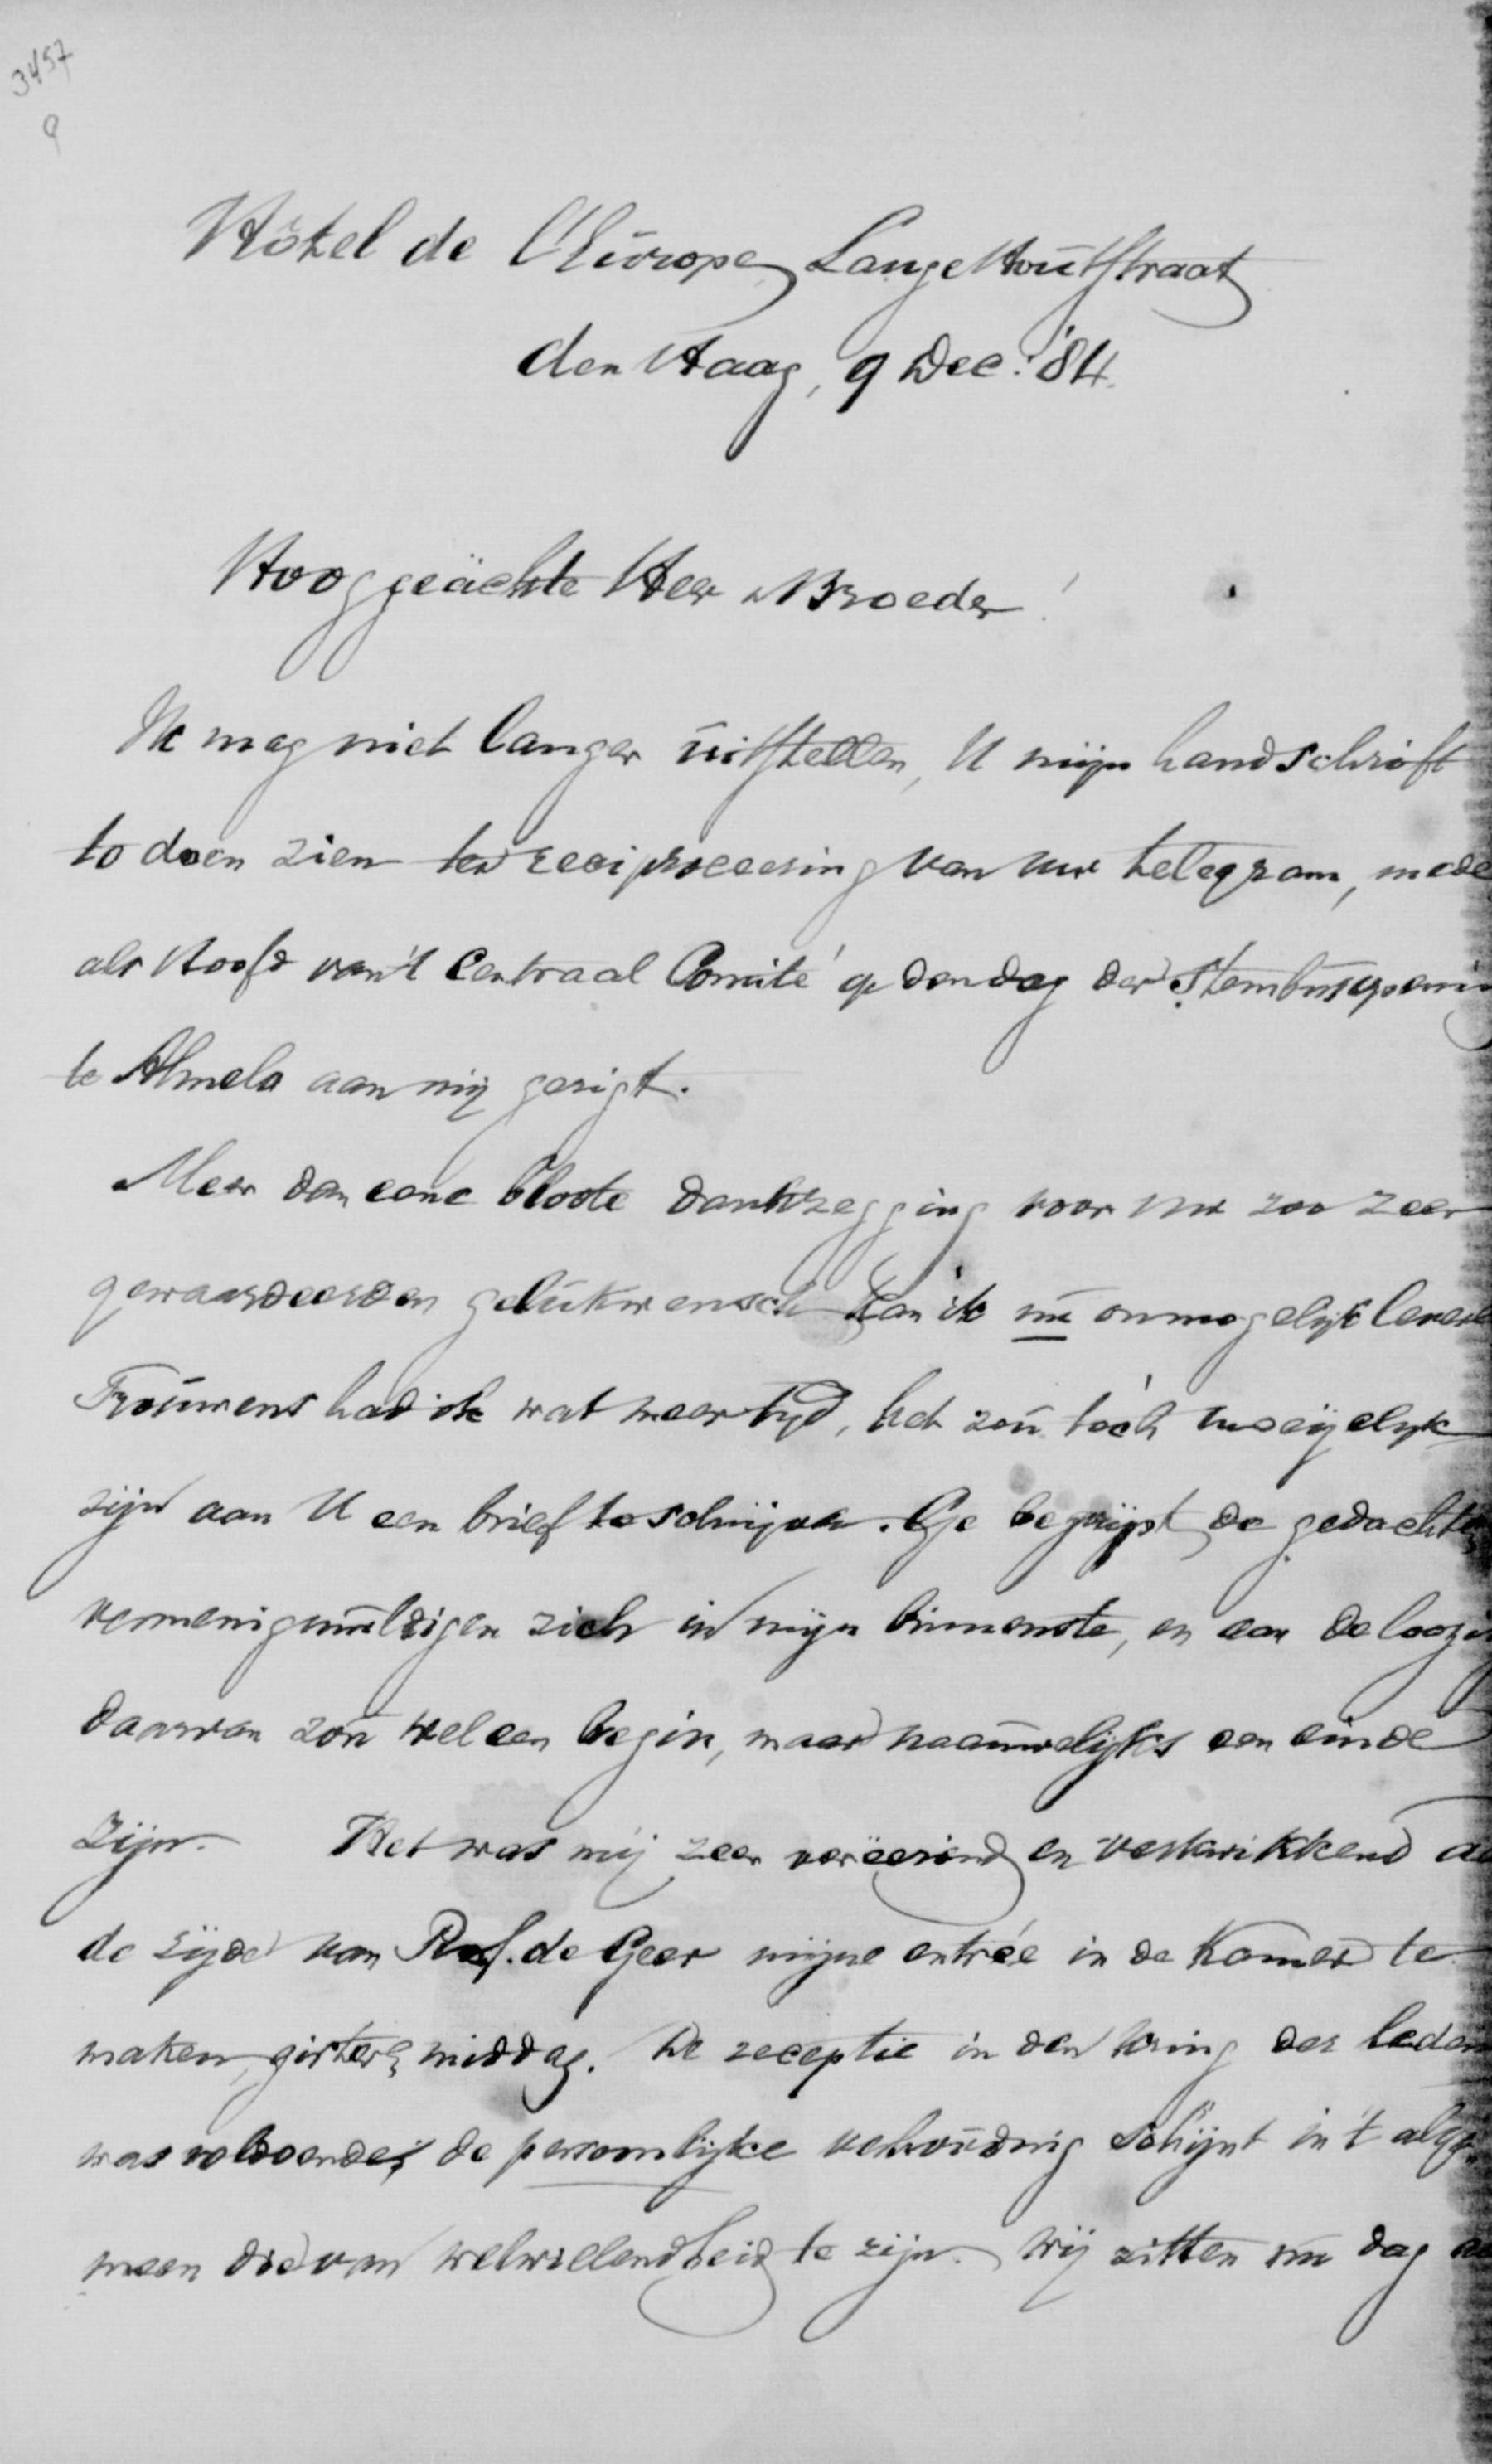 3457
9
Hôtel de l'Europe, Lange Houtstraat
den Haag, 9 Dec. '84.
Hooggeachte Heer & Broeder!
Ik mag niet langer uitstellen, U mijn handschrift
te doen zien ter reciproceering van uw telegram, mede
als Hoofd van 't Centraal Comité op den dag der Stembusopenin
te Almelo aan mij gerigt.
Meer dan eene bloote dankzegging voor uw zoo zeer
gewaardeerden gelukwensch kan ik nu onmogelijk levere
Trouwens had ik wat meer tijd, het zou tóch moeijelijk
zijn aan U een brief te schrijven. Ge begrijpt, de gedachten
vermenigvuldigen zich in mijn binnenste, en aan de loozin
daarvan zou wel een begin, maar naauwelijks een einde
zijn. Het was mij zeer vereerend en verkwikkend aa
de zijde van Prof. de Geer mijne entrée in de Kamer te
maken, gisteren middag. De receptie in den kring der leden
was voldoende; de persoonlijke verhouding schijnt in 't alge
meen die van welwillendheid te zijn. Wij zitten nu dag aa